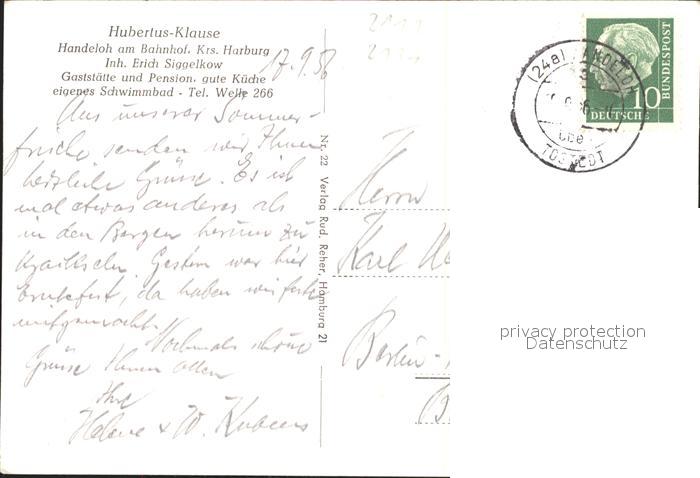 Hubertus-Klause
Handeloh am Bahnhof, Krs. Harburg
Inh. Erich Siggelkow
Gaststätte und Pension, gute Küche
eigenes Schwimmbad - Tel. Welle 266
17.9.56
Aus unserer Sommer-
frische senden wir Ihnen
herzliche Grüsse. Es ist
mal etwas anderes als
in den Bergen herum zu
kraxeln. Gestern war hier
Erntefest, da haben wir feste
mitgemacht.
Nochmals schöne
Grüsse Ihnen allen
Ihre
Helene & W.
Nr. 22 Verlag Rud. Reher, Hamburg 21
Herrn
Karl
Berlin-
(24a) HANDELOH
über
TOSTEDT
10
DEUTSCHE
BUNDESPOST
privacy protection
Datenschutz